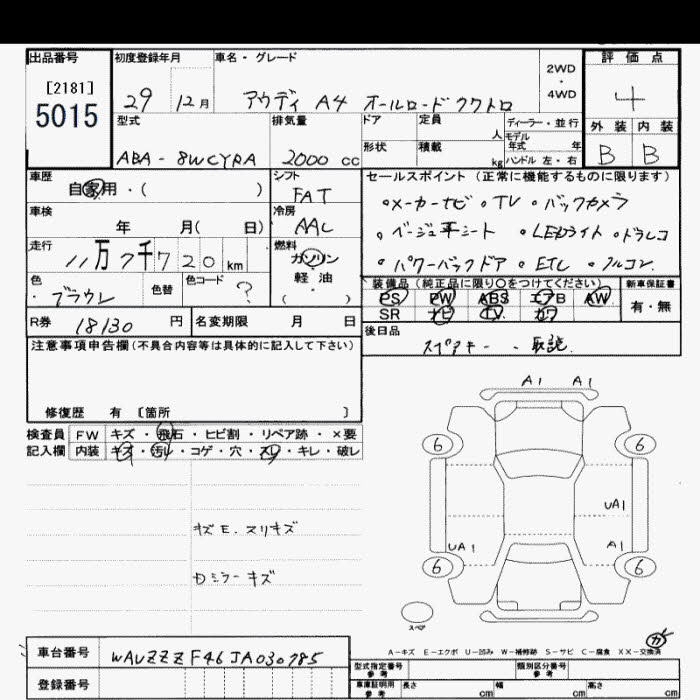 出品番号 初度登録年月 車名・グレード 評価点
[2181]
5015
29 12月 アウディ A4 オールロードクワトロ
2WD
・
4WD
4
型式 排気量 ドア 定員 人 ディーラー・並行
形状 積載 kg モデル年式 年
ハンドル 左・右
外装 内装
B B
ABA-8WCYRA 2000 cc
車歴 自家用・( )
シフト FAT
セールスポイント (正常に機能するものに限ります)
・メーカーナビ ・TV ・バックカメラ
・ベージュ革シート ・LEDライト ・ドラレコ
・パワーバックドア ・ETC ・フルコン.
車検 年 月( 日)
冷房 AAC
走行 11万7千720km
燃料 ガソリン
・
軽油
( )
色 ・ブラウン 色替 色コード ?
装備品 (純正品に限り○をつけてください) 新車保証書
PS PW ABS エアB AW
SR ナビ TV カワ
有・無
R券 18130 円 名変期限 月 日
後日品
スペアキー、取説.
注意事項申告欄(不具合内容等は具体的に記入して下さい)
修復歴 有 〔箇所 〕
検査員 FW キズ・飛石・ヒビ割・リペア跡・×要
記入欄 内装 キズ・汚れ・コゲ・穴・スレ・キレ・破レ
キズE.スリキズ
Dミラーキズ
A1 A1
6 6
UA1
UA1 A1
6 6
スペア
A-キズ E-エクボ U-凹み W-補修跡 S-サビ C-腐食 XX-交換済
車台番号 WAUZZZF46JA030785
登録番号
型式指定番号 参考 類別区分番号 参考
車庫証明用 参考 長さ cm 幅 cm 高さ cm